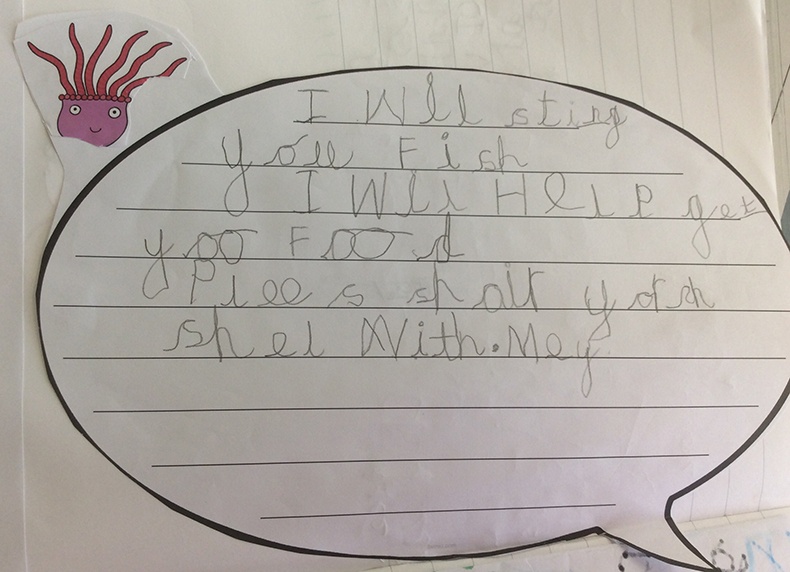 I Wll sting
yoll Fish
I Will HelP get
yoo Food
Plees shair yorsh
shel With.Mey